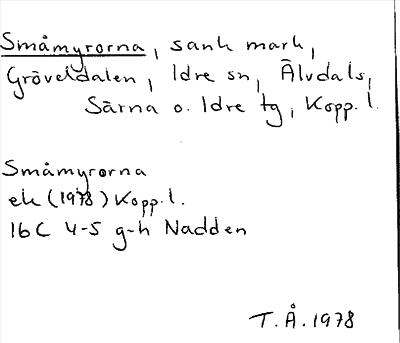 Småmyrorna, sank mark,
Gröveldalen, Idre sn, Älvdals,
Särna o. Idre tg, Kopp. l.
Småmyrorna
ek (1978) Kopp. l.
16C 4-5 g-h Nadden
T.Å. 1978